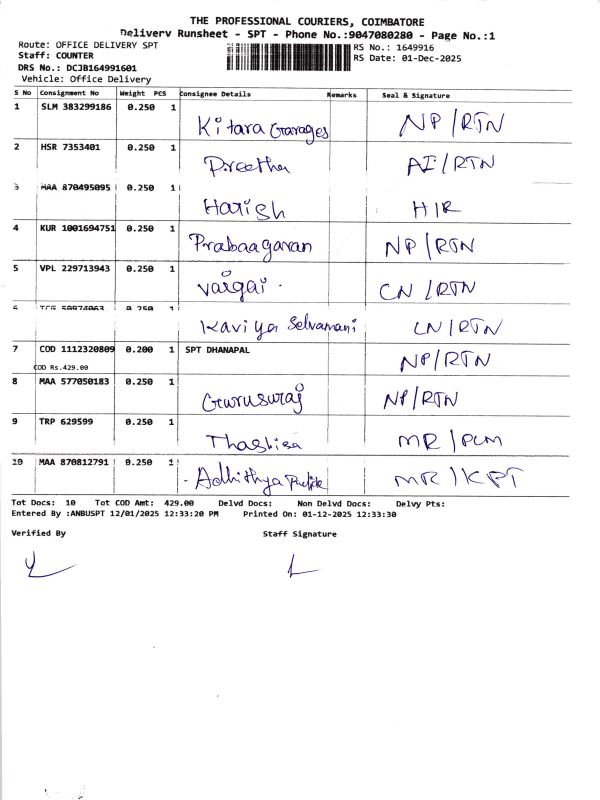 THE PROFESSIONAL COURIERS, COIMBATORE
Delivery Runsheet - SPT - Phone No.:9047080280 - Page No.:1
Route: OFFICE DELIVERY SPT
RS No.: 1649916
Staff: COUNTER
RS Date: 01-Dec-2025
DRS No.: DCJB164991601
Vehicle: Office Delivery
S No Consignment No Weight PCS Consignee Details Remarks Seal & Signature
1 SLM 383299186 0.250 1
Kitara Garages NP/RTN
2 HSR 7353401 0.250 1
Preetha AI/RTN
3 MAA 870495095 0.250 1
Harish HIR
4 KUR 1001694751 0.250 1
Prabaagaran NP/RTN
5 VPL 229713943 0.250 1
Vaigai CN/RTN
0.250 1
Kaviya Selvamani LN/RTN
7 COD 1112320809 0.200 1 SPT DHANAPAL
COD Rs.429.00 NP/RTN
8 MAA 577050183 0.250 1
Gurusuraj NP/RTN
9 TRP 629599 0.250 1
MR/PLM
10 MAA 870812791 0.250 1
Adhithya MR/KPT
Tot Docs: 10 Tot COD Amt: 429.00 Delvd Docs: Non Delvd Docs: Delvy Pts:
Entered By :ANBUSPT 12/01/2025 12:33:20 PM Printed On: 01-12-2025 12:33:30
Verified By Staff Signature